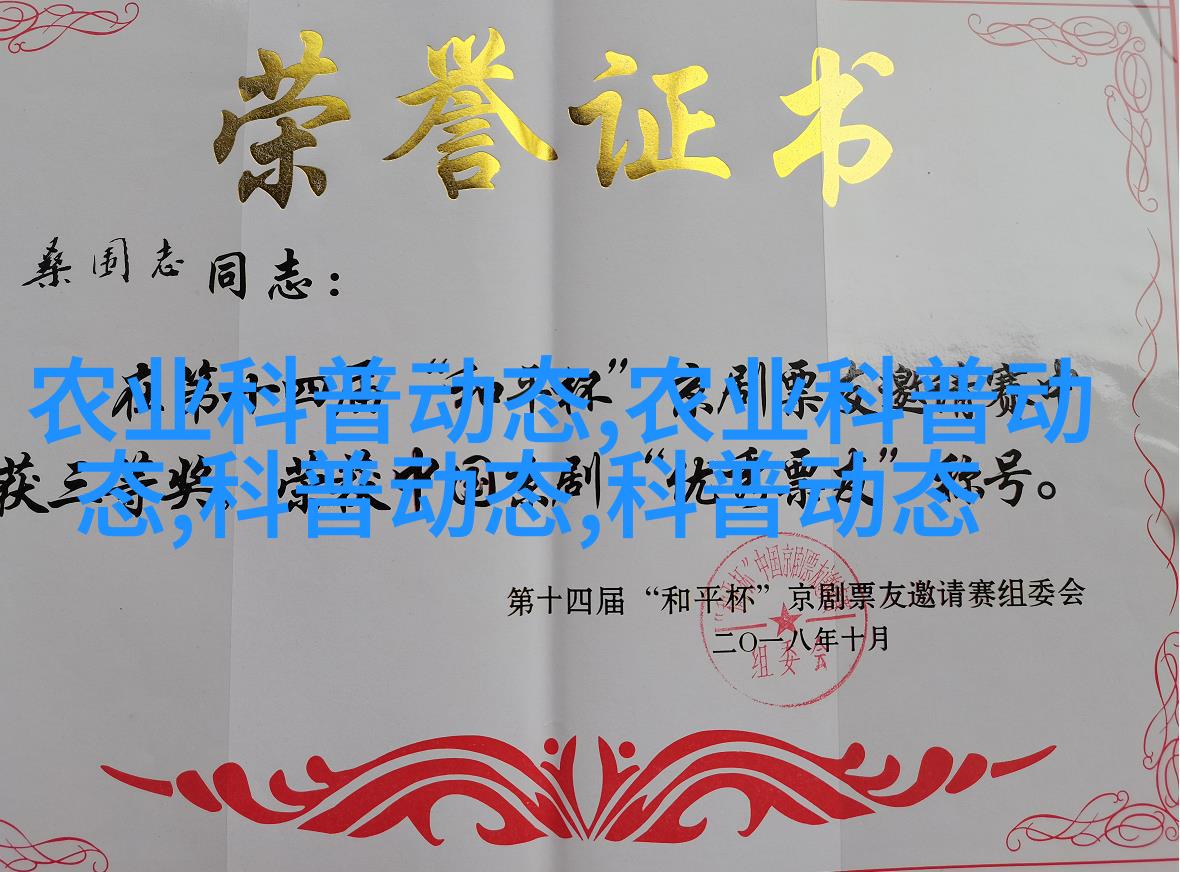 荣誉证书
桑国志同志：
在第十四届“和平杯”京剧票友邀请赛中
农业科普动态,农业科普动
获三等奖，荣获中国京剧“优秀票友”称号。
态,科普动态,科普动态
第十四届“和平杯”京剧票友邀请赛组委会
二〇一八年十月
“和平杯”中国京剧票友邀请赛
组委会